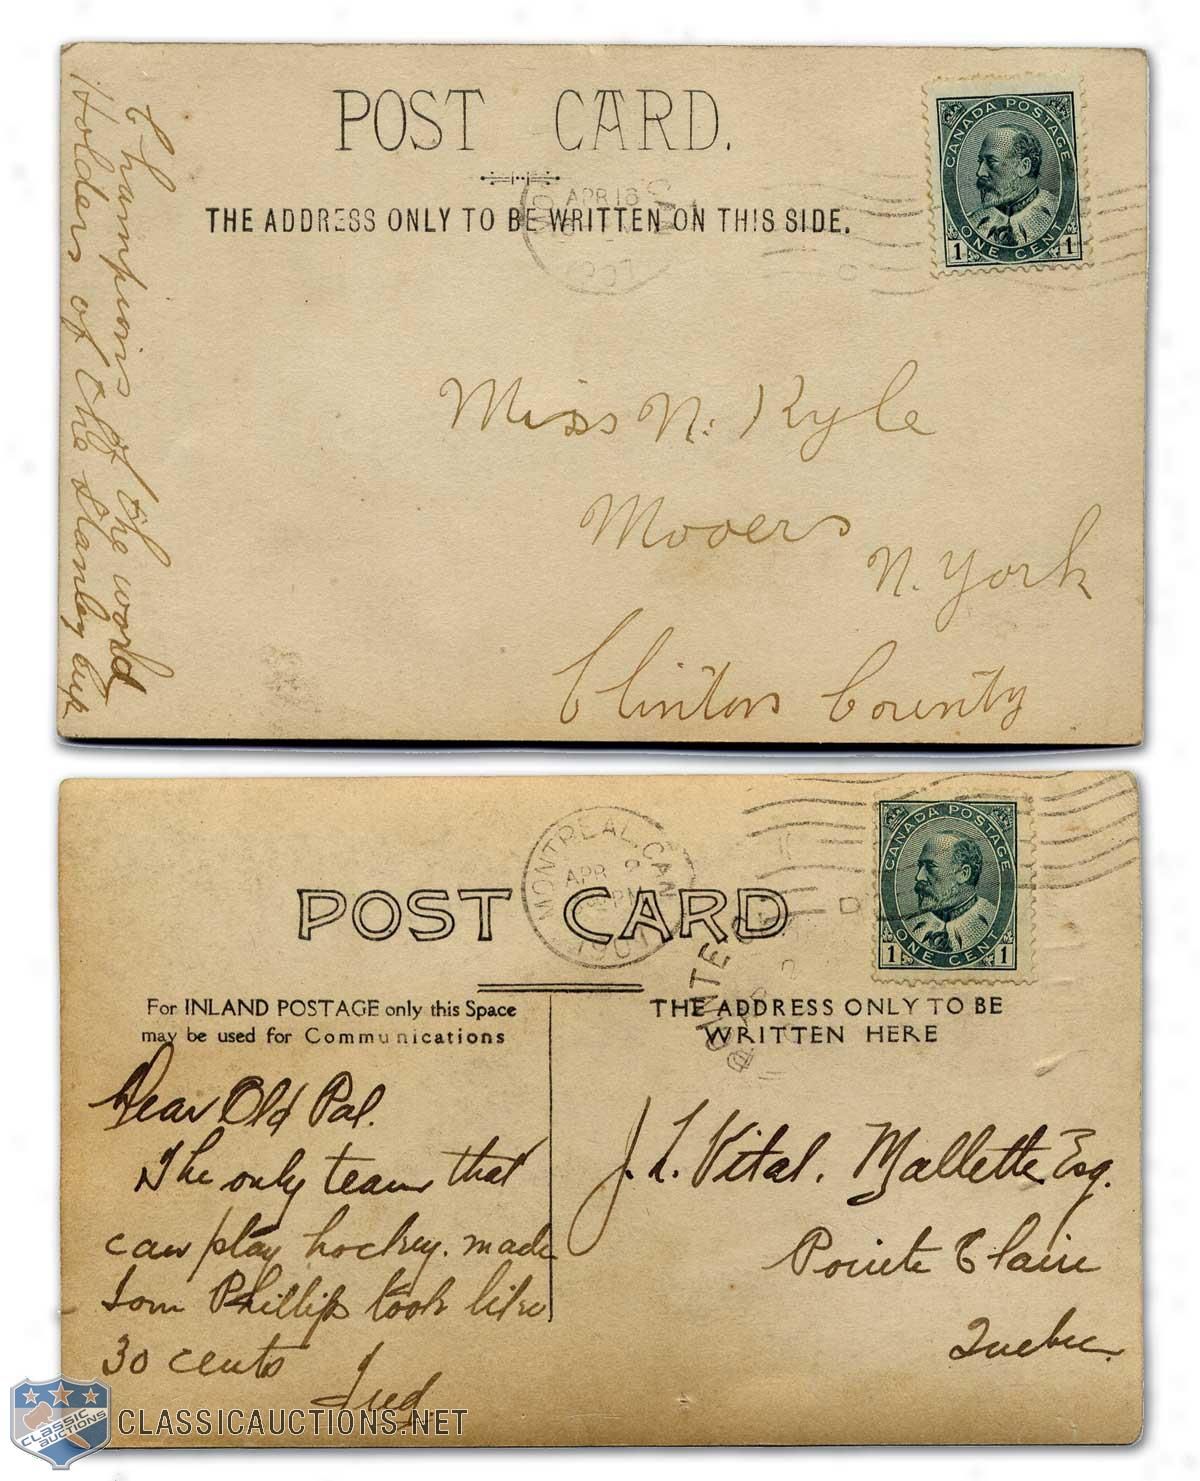 POST CARD.
THE ADDRESS ONLY TO BE WRITTEN ON THIS SIDE.
APR 18
1907
CANADA POSTAGE
1 ONE CENT 1
Champions of the world
Holders of the Stanley Cup
Miss N. Kyle
Mooers
N. York
Clinton County
POST CARD
MONTREAL, CAN.
APR
PM
1907
CANADA POSTAGE
1 ONE CENT 1
For INLAND POSTAGE only this Space
may be used for Communications
THE ADDRESS ONLY TO BE
WRITTEN HERE
POINTE
Dear Old Pal.
The only team that
can play hockey. made
Tom Phillips look like
30 cents
Fred
J. L. Vital. Mallette Esq.
Pointe Claire
Quebec.
CLASSIC
AUCTIONS
CLASSICAUCTIONS.NET